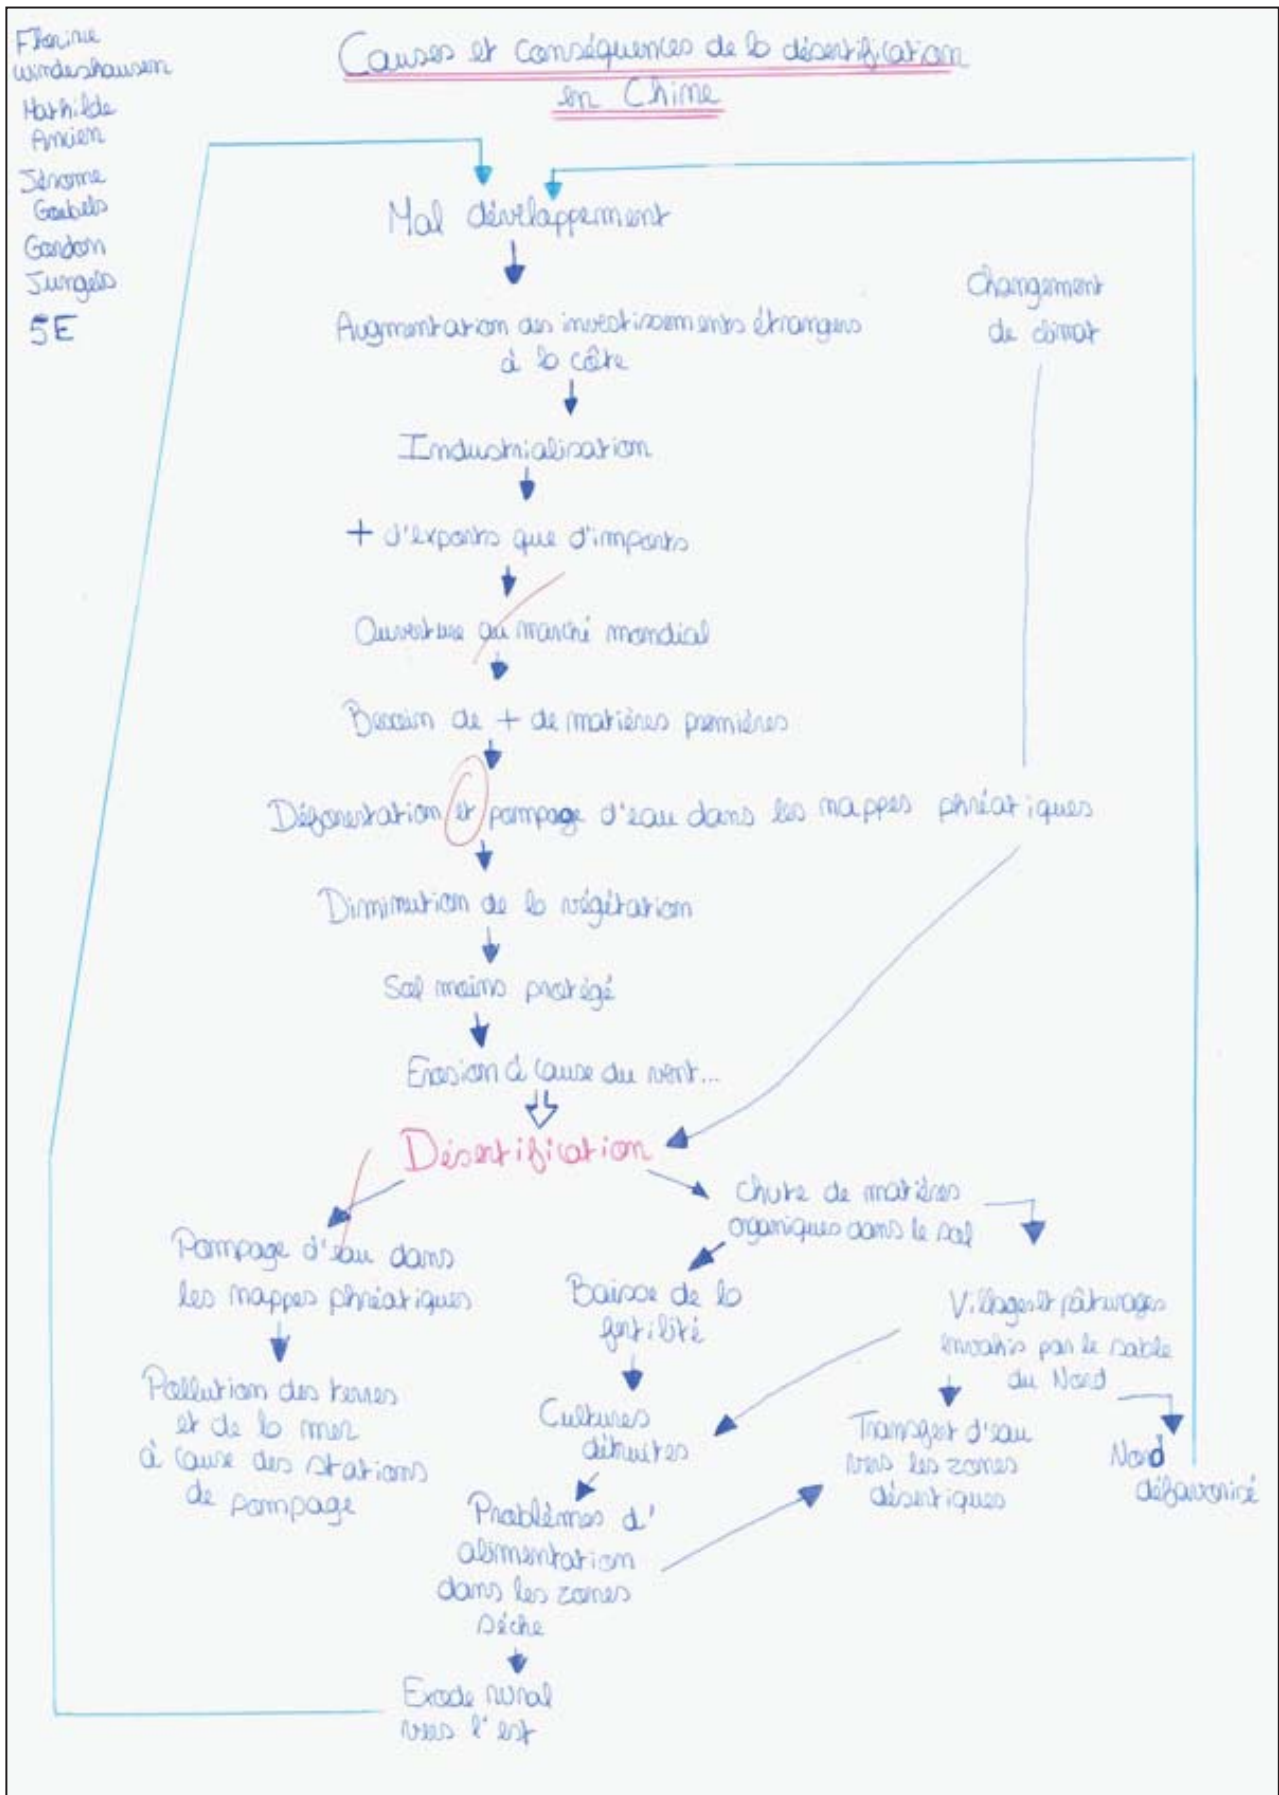 Florine
Windeshausen
Mathilde
Ancien
Jérome
Goebels
Gordon
Jungels
5E
Causes et conséquences de la désertification
en Chine
Mal développement
Augmentation des investissements étrangers
à la côte
Changement
de climat
Industrialisation
+ d'exports que d'imports
Ouverture au marché mondial
Besoin de + de matières premières
Déforestation et pompage d'eau dans les nappes phréatiques
Diminution de la végétation
Sol moins protégé
Erosion à cause du vent...
Désertification
Pompage d'eau dans
les nappes phréatiques
Pollution des terres
et de la mer
à cause des stations
de pompage
Chute de matières
organiques dans le sol
Baisse de la
fertilité
Cultures
détruites
Problèmes d'
alimentation
dans les zones
sèche
Exode rural
vers l'est
Villages et pâturages
envahis par le sable
du Nord
Transfert d'eau
vers les zones
désertiques
Nord
défavorisé